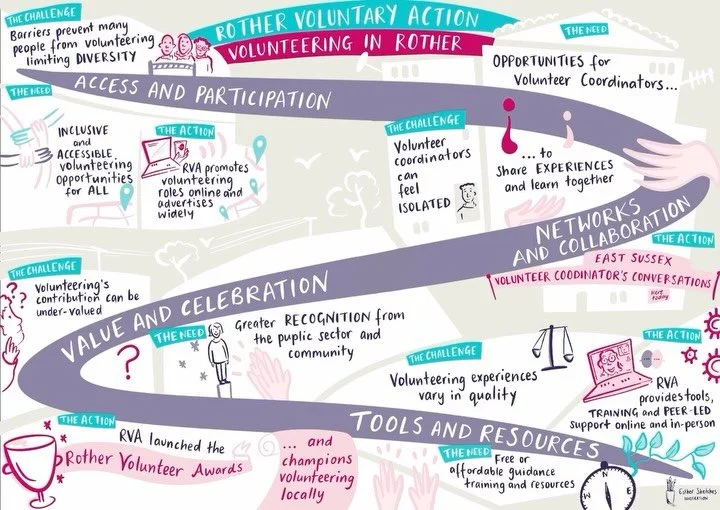 ROTHER VOLUNTARY ACTION
VOLUNTEERING IN ROTHER
THE CHALLENGE
Barriers prevent many
people from volunteering
limiting DIVERSITY
ACCESS AND PARTICIPATION
THE NEED
INCLUSIVE
and
ACCESSIBLE
volunteering
opportunities
for ALL
THE ACTION
RVA promotes
volunteering
roles online and
advertises
widely
THE NEED
OPPORTUNITIES for
Volunteer Coordinators...
THE CHALLENGE
Volunteer
coordinators
can
feel
ISOLATED
... to
share EXPERIENCES
and learn together
NETWORKS
AND COLLABORATION
THE ACTION
EAST SUSSEX
VOLUNTEER COODINATOR'S CONVERSATIONS
THE CHALLENGE
Volunteering's
contribution can be
under-valued
VALUE AND CELEBRATION
?
THE NEED
Greater RECOGNITION from
the puplic sector and
community
THE CHALLENGE
Volunteering experiences
vary in quality
THE ACTION
RVA
provides tools,
TRAINING and PEER-LED
support online and in-person
TOOLS AND RESOURCES
THE ACTION
RVA launched the
Rother Volunteer Awards
... and
champions
volunteering
locally
THE NEED
Free or
affordable guidance
training and resources
N
E
S
W
Esther Sketches